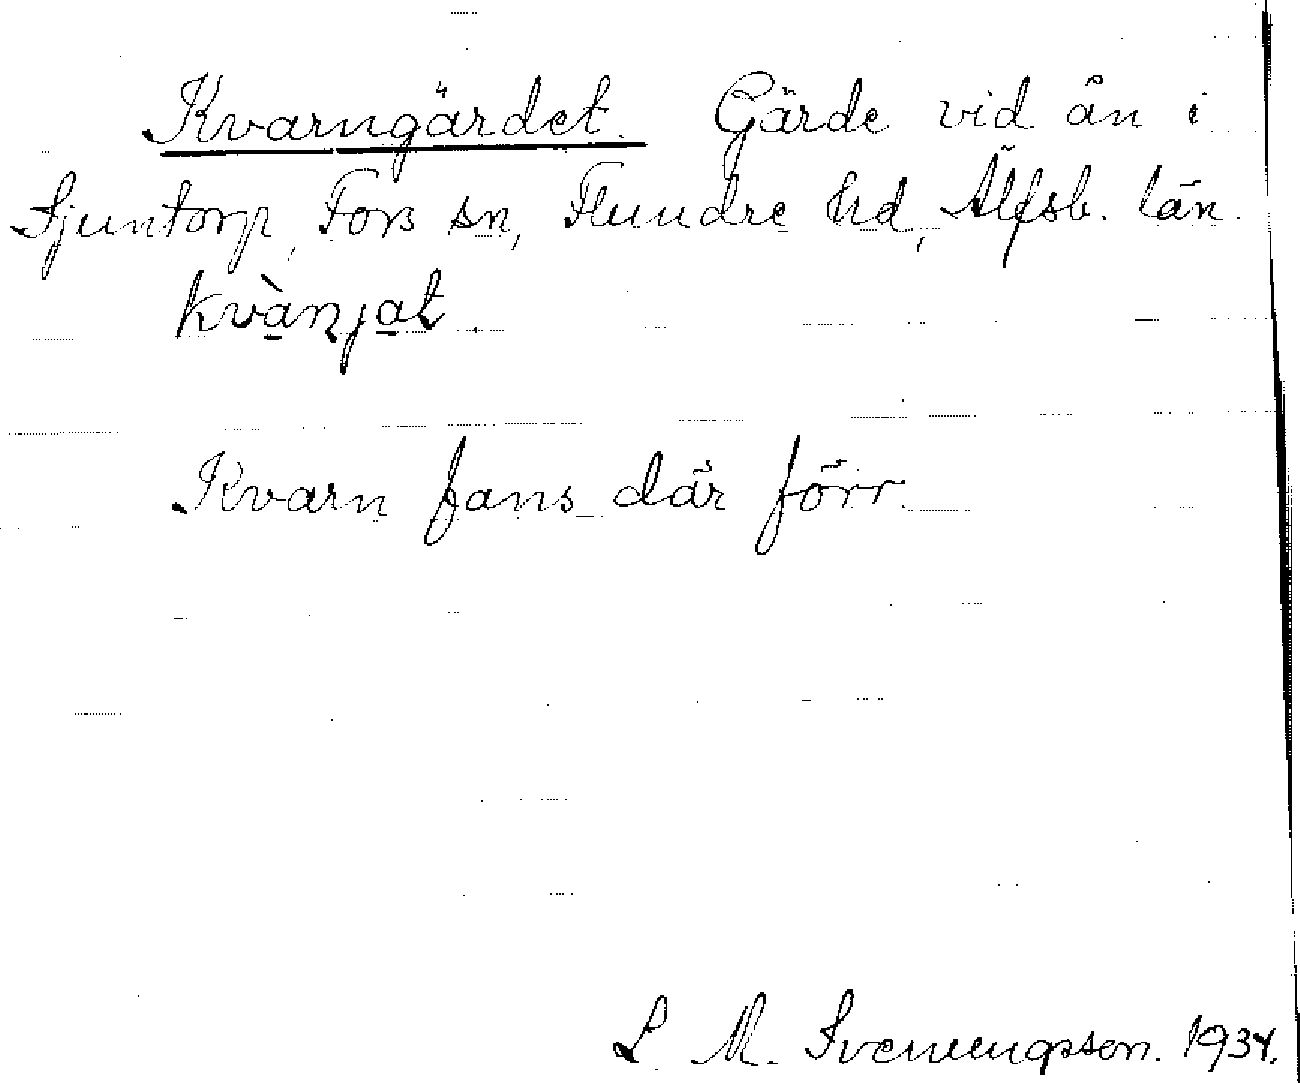 Kvarngärdet. Gärde vid ån i
Sjuntorp, Fors sn, Flundre hd, Älfsb. län.
kvànjat
Kvarn fans där förr.
L. M. Svenungsson. 1934.